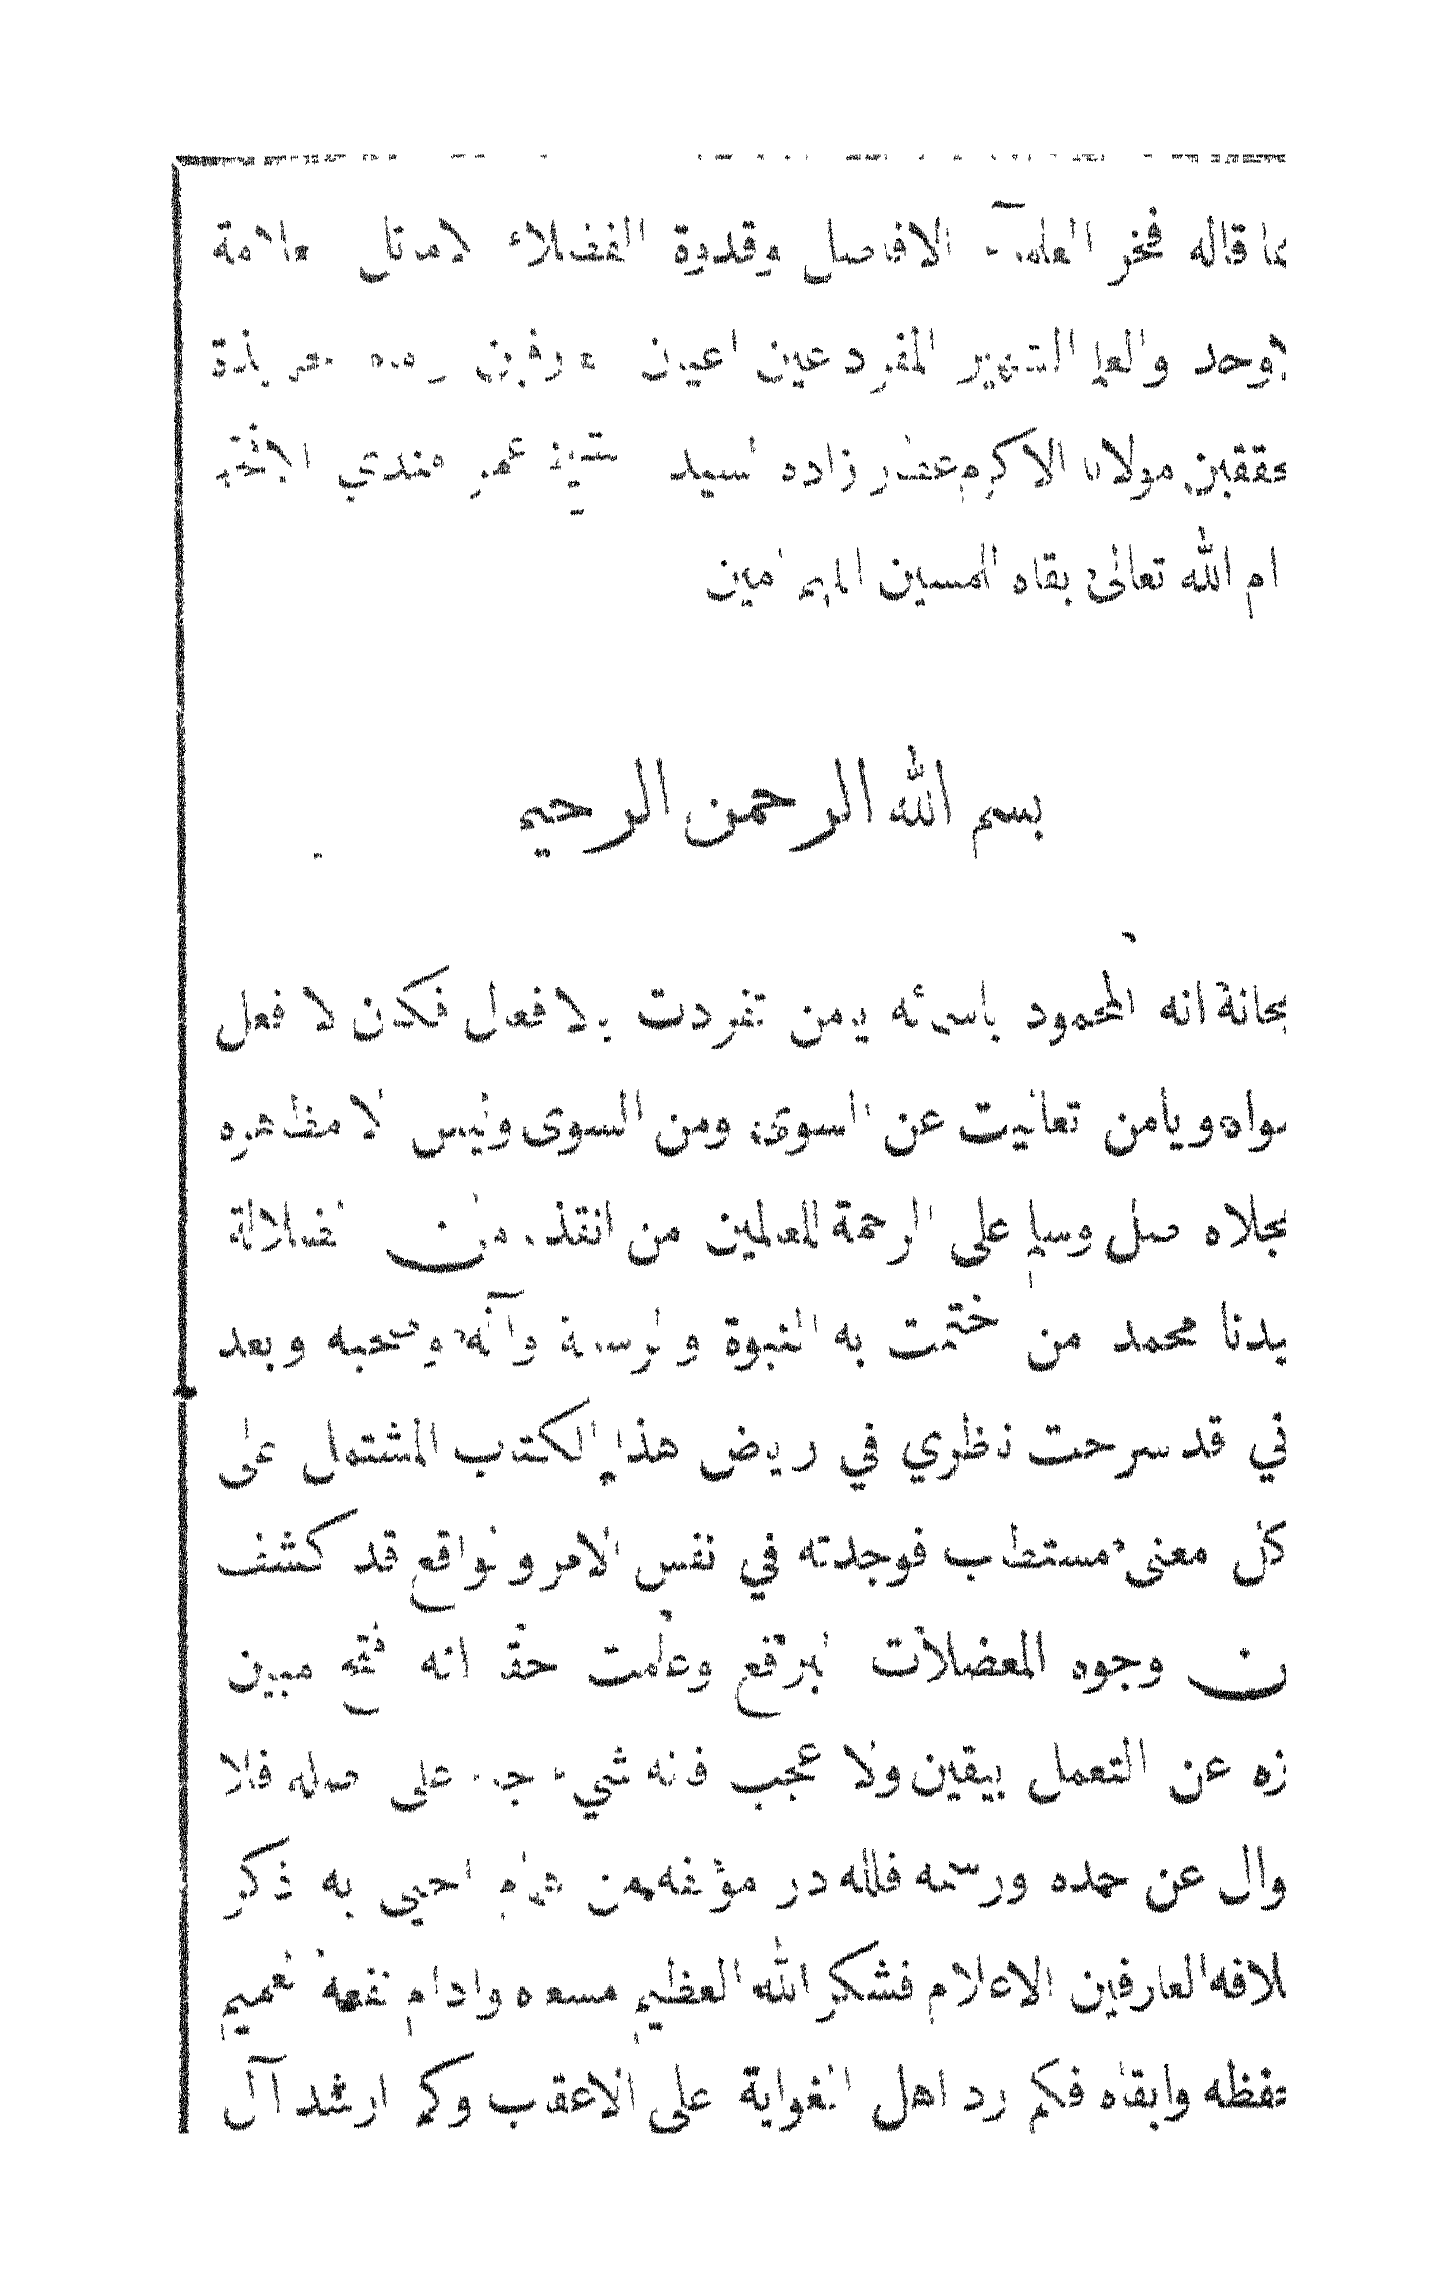 قاله فخر العلماء الافاضل وقدوة الفضلاء الاماثل علامة
والعلم الشهير المفرد عين اعيان
مولانا الاكرم عنقر زاده السيد الشيخ عمر افندي
الله تعالى بقاه للمسلمين اللهم امين
بسم الله الرحمن الرحيم
انه المحمود باسمائه يامن تفردت بالافعال فكان لا فعل
ويامن تعاليت عن السوى ومن السوى وليس الا مظاهره
صل وسلم على الرحمة للعالمين من انقذ من الضلالة
محمد من ختمت به النبوة والرسالة وآله وصحبه وبعد
قد سرحت نظري في رياض هذا الكتاب المشتمل على
كل معنى مستطاب فوجدته في نفس الامر والواقع قد كشف
وجوه المعضلات البرقع وعلمت حقا انه فتح مبين
عن التعمل بيقين ولا عجب فانه شيء جاء على اصله فلا
عن حده ورسمه فلله در مؤلفه من همام احيى به ذكر
العارفين الاعلام فشكر الله العظيم مسعاه وادام نفعه العميم
وابقاه فكم رد اهل الغواية على الاعقاب وكم ارشد آل